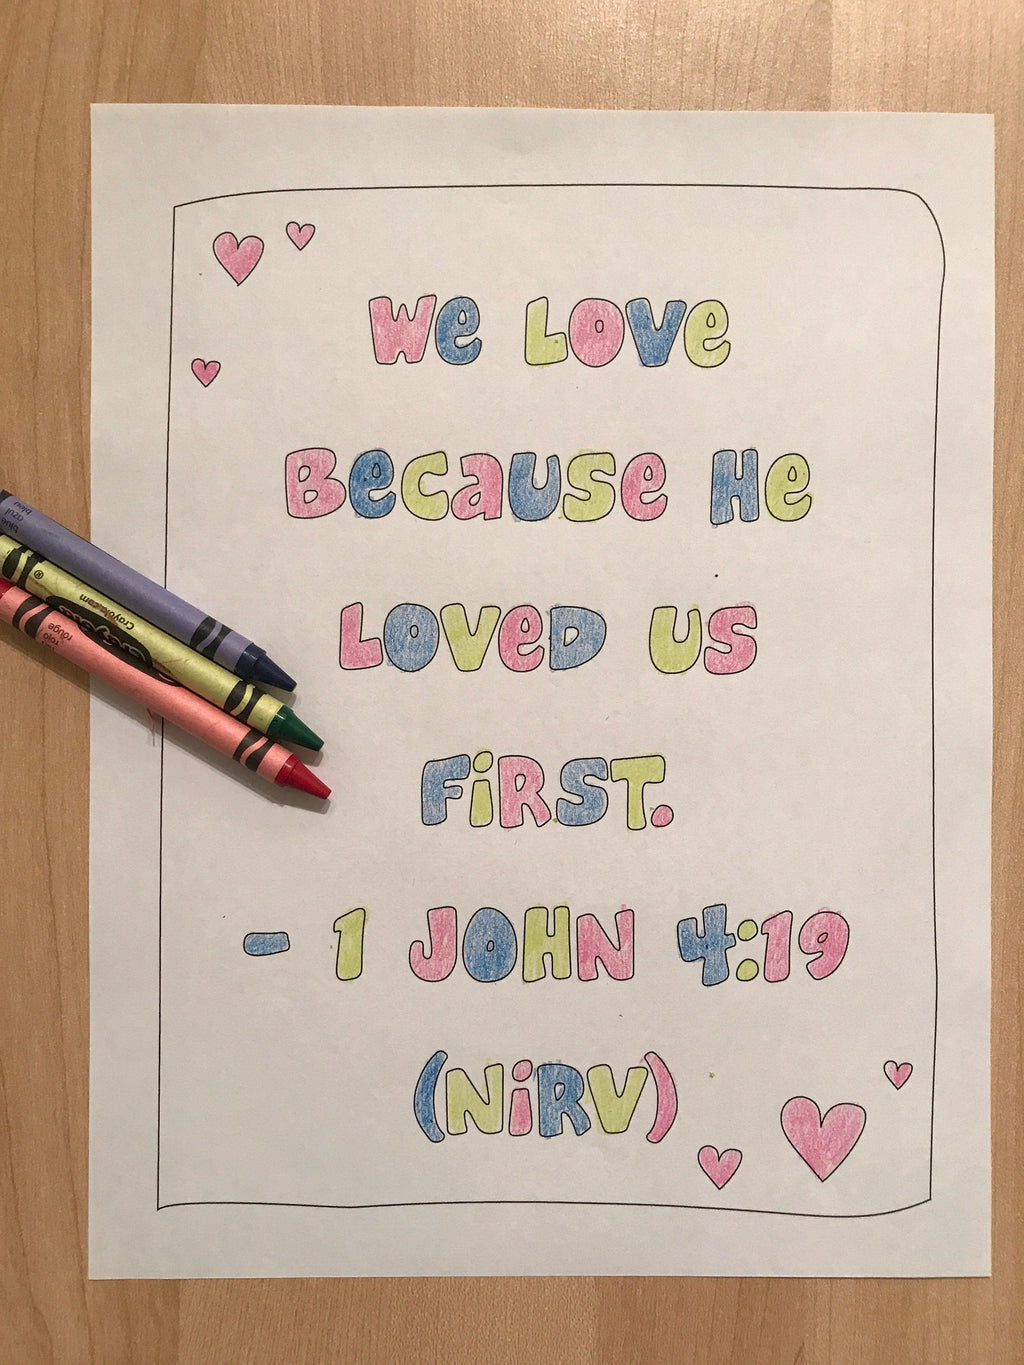 We Love
Because He
Loved Us
First.
- 1 John 4:19
(NiRV)
blue
azul
bleu
Crayola.com
Crayola
rouge
rojo